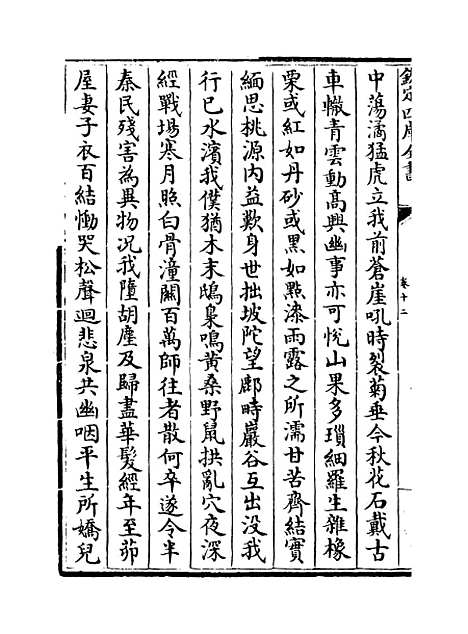 欽定四庫全書
卷十二
中蕩潏猛虎立我前蒼崖吼時裂菊垂今秋花石戴古
車轍青雲動髙興幽事亦可悅山果多瑣細羅生雜橡
栗或紅如丹砂或黒如點漆雨露之所濡甘苦齊結實
緬思桃源内益歎身世拙坡陀望鄜畤巖谷互出没我
行已水濱我僕猶木末鴟梟鳴黄桑野鼠拱亂穴夜深
經戰場寒月照白骨潼關百萬師往者散何卒遂令半
秦民殘害為異物况我墮胡塵及歸盡華髪經年至茆
屋妻子衣百結慟哭松聲迴悲泉共幽咽平生所嬌兒